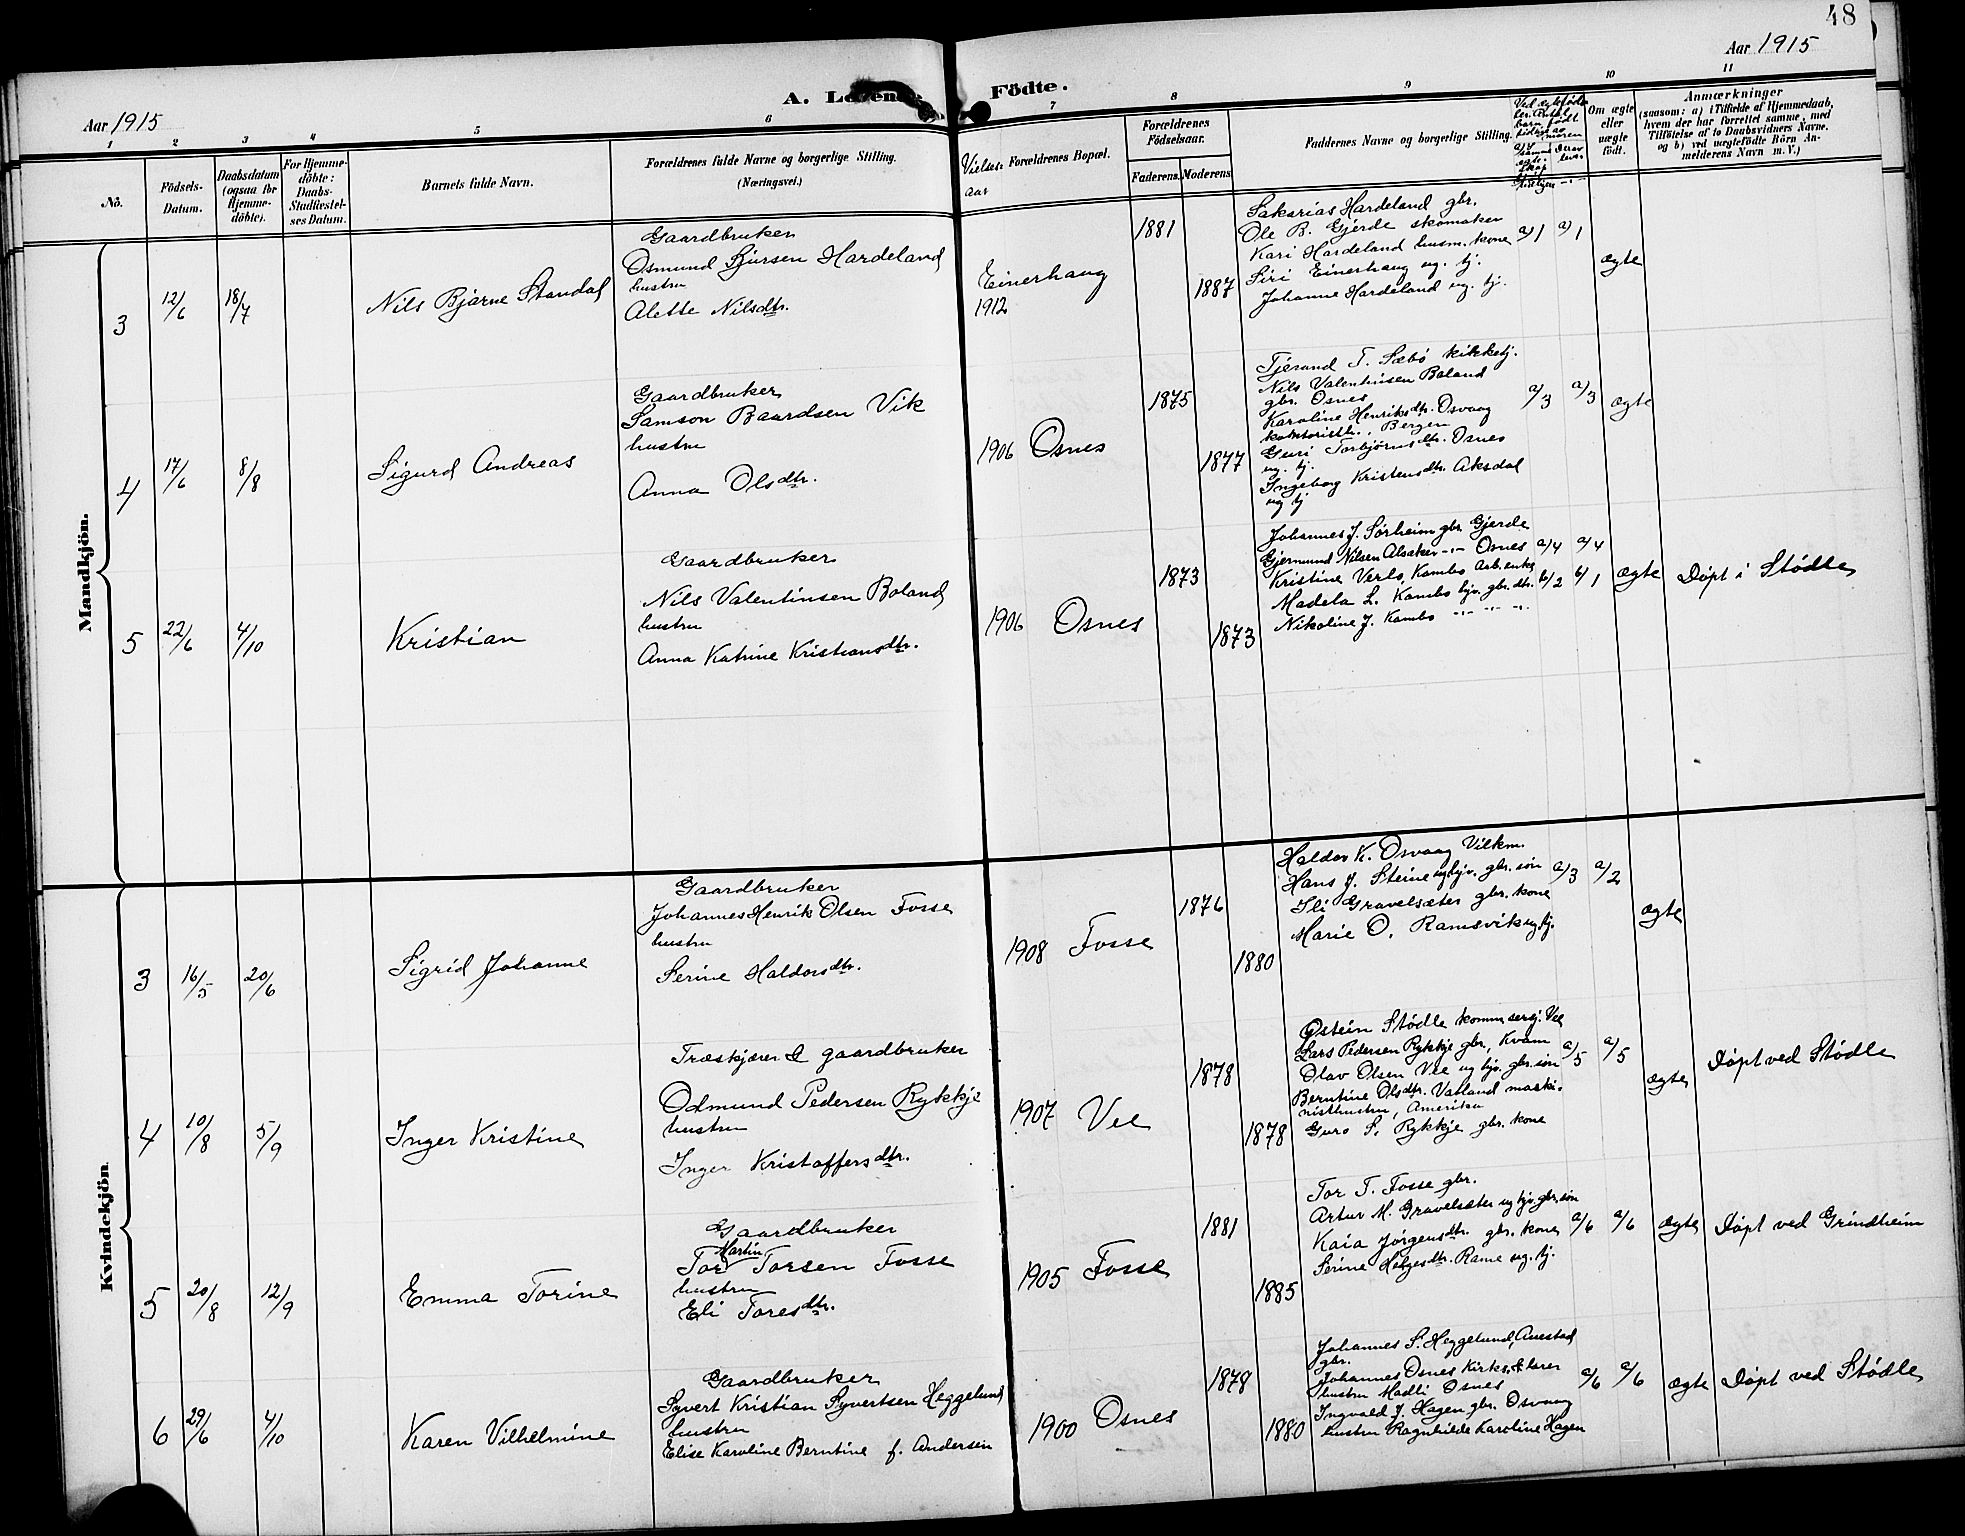 48
Aar 1915
Aar 1915
A. Födte.
1 2 3 4 5 6 7 8 9 10 11
No.
Födsels-
Datum.
Daabsdatum
(ogsaa for
Hjemme-
döbte).
For Hjemme-
döbte:
Daabs-
Stadfæstel-
ses Datum.
Barnets fulde Navn.
Forældrenes fulde Navne og borgerlige Stilling.
(Næringsvei.)
Vielses
aar
Forældrenes Bopæl.
Forældrenes
Födselsaar.
Faderens. Moderens
Faddernes Navne og borgerlige Stilling.
Om ægte
eller
uægte
födt.
Anmærkninger
(saasom: a) i Tilfælde af Hjemmedaab,
hvem der har forrettet samme, med
Tilföielse af to Daabsvidners Navne.
og b) ved uægtefödte Börn An-
melderens Navn m. V.)
Mandkjön.
3 12/6 18/7
Nils Bjarne Standal
Gaardbruker
Osmund Sjursen Hardeland
hustru
Alette Nilsdtr.
Einerhaug
1912
1881
1887
Sakarias Hardeland gbr.
Ole B. Gjerde skomaker
Kari Hardeland husm. kone
Siri Einerhaug ug. tj.
Johanne Hardeland ug. tj.
a/1 a/1
ægte
4 17/6 8/8
Sigurd Andreas
Gaardbruker
Samson Baardsen Vik
hustru
Anna Olsdtr.
1906 Osnes
1875
1877
Tjerand T. Sæbö kikketj.
Nils Valentinsen Boland
gbr. Osnes
Karoline Henriksdtr. Osvaag
kontoristh., Bergen
Guri Torbjörnsdtr. Osnes
ug. tj.
Ingeborg Kristensdtr. Aksdal
ug tj
a/3 a/3
ægte
5 22/6 4/10
Kristian
Gaardbruker
Nils Valentinsen Boland
hustru
Anna Katrine Kristiansdtr.
1906 Osnes
1873
1873
Johannes J. Sørheim gbr. Gjerde
Gjermund Nilsen Alsaker -"- Osnes
Kristine Verlo, Kambo arb. enke
Madela L. Kambo hjv. gbr. dtr.
Nikoline J. Kambo -"- -"- -"-
a/4 a/4
b/2 b/1
ægte
Døpt i Stødle
Kvindekjön.
3 16/5 20/6
Sigrid Johanne
Gaardbruker
Johannes Henrik Olsen Fosse
hustru
Serine Haldorsdtr.
1908 Fosse
1876
1880
Haldor K. Osvaag Vilkm.
Hans J. Steine ug hjv. gbr. søn
Ili Gravelsæter gbr. kone
Marie O. Ramsvik ug tj.
a/3 a/2
ægte
4 10/8 5/9
Inger Kristine
Træskjærer & gaardbruker
Odmund Pedersen Rykkje
hustru
Inger Kristoffersdtr.
1907 Vee
1878
1878
Østein Stødle Vee
Lars Pedersen Rykkje gbr., Kvam
Olav Olsen Vee ug hjv. gbr. søn
Berntine Olsdtr. Vatland maski-
nisthustru, Amerika
Guro S. Rykkje gbr. kone
a/5 a/5
ægte
Døpt ved Stødle
5 20/8 12/9
Emma Torine
Gaardbruker
Martin
Tor Torsen Fosse
hustru
Eli Toresdtr.
1905 Fosse
1881
1885
Tor T. Fosse gbr.
Artur M. Gravelsæter ug hjv. gbr. søn
Kaia Jørgensdtr. gbr. kone
Serine Helgesdtr. Rame ug. tj.
a/6 a/6
ægte
Døpt ved Grindheim
6 29/6 4/10
Karen Vilhelmine
Gaardbruker
Syvert Kristian Syvertsen Heggelund
hustru
Elise Karoline Berntine f. Andersen
1900 Osnes
1878
1880
Johannes S. Heggelund, Auestad
gbr.
Johannes Osnes
hustru Madli Osnes
Ingvald J. Hagen gbr. Osvaag
hustru Ragnhilde Karoline Hagen
a/6 a/6
ægte
Døpt ved Stødle